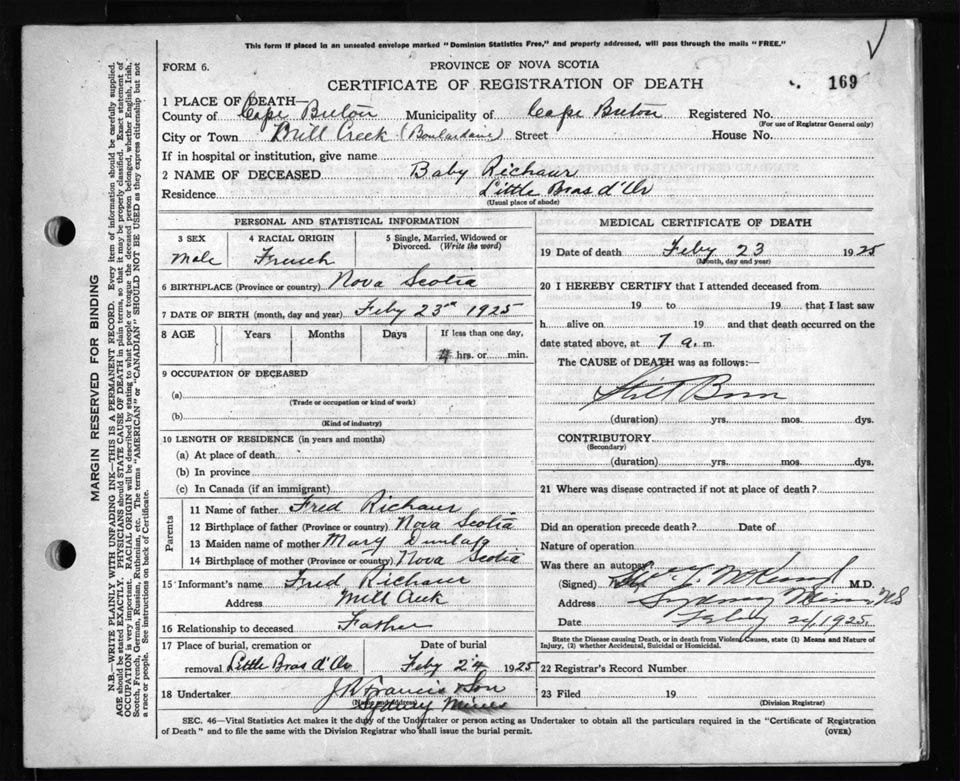 This form if placed in an unsealed envelope marked "Dominion Statistics Free," and properly addressed, will pass through the mails "FREE."
FORM 6.
PROVINCE OF NOVA SCOTIA
CERTIFICATE OF REGISTRATION OF DEATH
169
1 PLACE OF DEATH—
County of Cape Breton Municipality of Cape Breton Registered No.
(For use of Registrar General only)
City or Town Mill Creek (Boulardarie) Street House No.
If in hospital or institution, give name
2 NAME OF DECEASED Baby Richaur
Residence Little Bras d'Or
(Usual place of abode)
PERSONAL AND STATISTICAL INFORMATION
3 SEX
Male
4 RACIAL ORIGIN
French
5 Single, Married, Widowed or Divorced. (Write the word)
6 BIRTHPLACE (Province or country) Nova Scotia
7 DATE OF BIRTH (month, day and year) Feby 23rd 1925
8 AGE Years Months Days If less than one day,
hrs. or min.
9 OCCUPATION OF DECEASED
(a)
(Trade or occupation or kind of work)
(b)
(Kind of industry)
10 LENGTH OF RESIDENCE (in years and months)
(a) At place of death
(b) In province
(c) In Canada (if an immigrant)
Parents
11 Name of father Fred Richaur
12 Birthplace of father (Province or country) Nova Scotia
13 Maiden name of mother Mary Dunlap
14 Birthplace of mother (Province or country) Nova Scotia
15 Informant's name Fred Richaur
Address Mill Creek
16 Relationship to deceased Father
17 Place of burial, cremation or
removal Little Bras d'Or Feby 24 1925
18 Undertaker J R Francis & Son
(Name and address) Sydney Mines
MEDICAL CERTIFICATE OF DEATH
19 Date of death Feby 23 1925
(Month, day and year)
20 I HEREBY CERTIFY that I attended deceased from
19 to 19 that I last saw
h alive on 19 and that death occurred on the
date stated above, at 7 a. m.
The CAUSE of DEATH was as follows:
Still Born
(duration) yrs. mos. dys.
CONTRIBUTORY
(Secondary)
(duration) yrs. mos. dys.
21 Where was disease contracted if not at place of death?
Did an operation precede death? Date of
Nature of operation
Was there an autopsy
(Signed) M.D.
Address Sydney Mines NS
Date Feby 24, 1925
State the Disease causing Death, or in death from Violent Causes, state (1) Means and Nature of Injury, (2) whether Accidental, Suicidal or Homicidal.
22 Registrar's Record Number
23 Filed 19
(Division Registrar)
SEC. 46—Vital Statistics Act makes it the duty of the Undertaker or person acting as Undertaker to obtain all the particulars required in the "Certificate of Registration
of Death" and to file the same with the Division Registrar who shall issue the burial permit. (OVER)
MARGIN RESERVED FOR BINDING
N.B.—WRITE PLAINLY WITH UNFADING INK—THIS IS A PERMANENT RECORD. Every item of information should be carefully supplied.
AGE should be stated EXACTLY. PHYSICIANS should STATE CAUSE OF DEATH in plain terms, so that it may be properly classified. Exact statement of
OCCUPATION is very important. RACIAL ORIGIN will be described by stating to what people or tongue the deceased person belonged, whether English, Irish,
Scotch, French, German, Russian, Ruthenian, etc. The terms "AMERICAN" or "CANADIAN" SHOULD NOT BE USED as they express citizenship but not
a race or people. See instructions on back of Certificate.